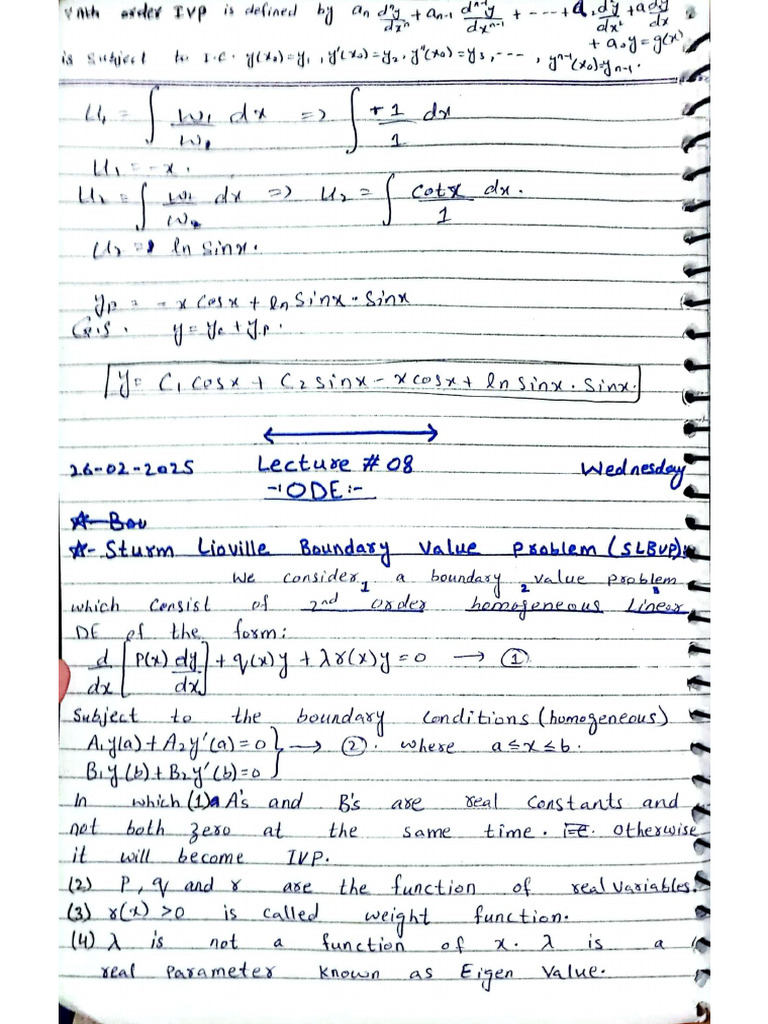 nth order IVP is defined by aₙ dⁿy/dxⁿ + aₙ₋₁ dⁿ⁻¹y/dxⁿ⁻¹ + ----- + a₂ dy/dx² + a dy/dx
+ a₀y = g(x)
is subject to I.C. y(x₀)=y₁, y'(x₀)=y₂, y''(x₀)=y₃, ----, yⁿ⁻¹(x₀)=yₙ₋₁.
U₁ = ∫ W₁/W₀ dx => ∫ +1/1 dx
U₁ = -x.
U₂ = ∫ W₂/W₀ dx => U₂ = ∫ cotx/1 dx.
U₂ = ln Sinx.
yp = -x cosx + ln Sinx · Sinx
G.S. y = yc + yp.
y = C₁ cosx + C₂ sinx - x cosx + ln sinx · Sinx.
26-02-2025 Lecture # 08 Wednesday
-: ODE :-
☆- Bou
☆- Sturm Lioville Boundary value problem (SLBVP):
We consider a boundary value problem
1 2 3
which consist of 2nd order homogeneous Linear
DE of the form:
d/dx [P(x) dy/dx] + q(x)y + λr(x)y = 0 → ①
Subject to the boundary conditions (homogeneous)
A₁y(a) + A₂y'(a) = 0 } → ②. where a ≤ x ≤ b.
B₁y(b) + B₂y'(b) = 0
In which (1) A's and B's are real constants and
not both zero at the same time. i.e. Otherwise
it will become IVP.
(2) P, q and r are the function of real variables.
(3) r(x) > 0 is called weight function.
(4) λ is not a function of x. λ is a
real parameter known as Eigen Value.